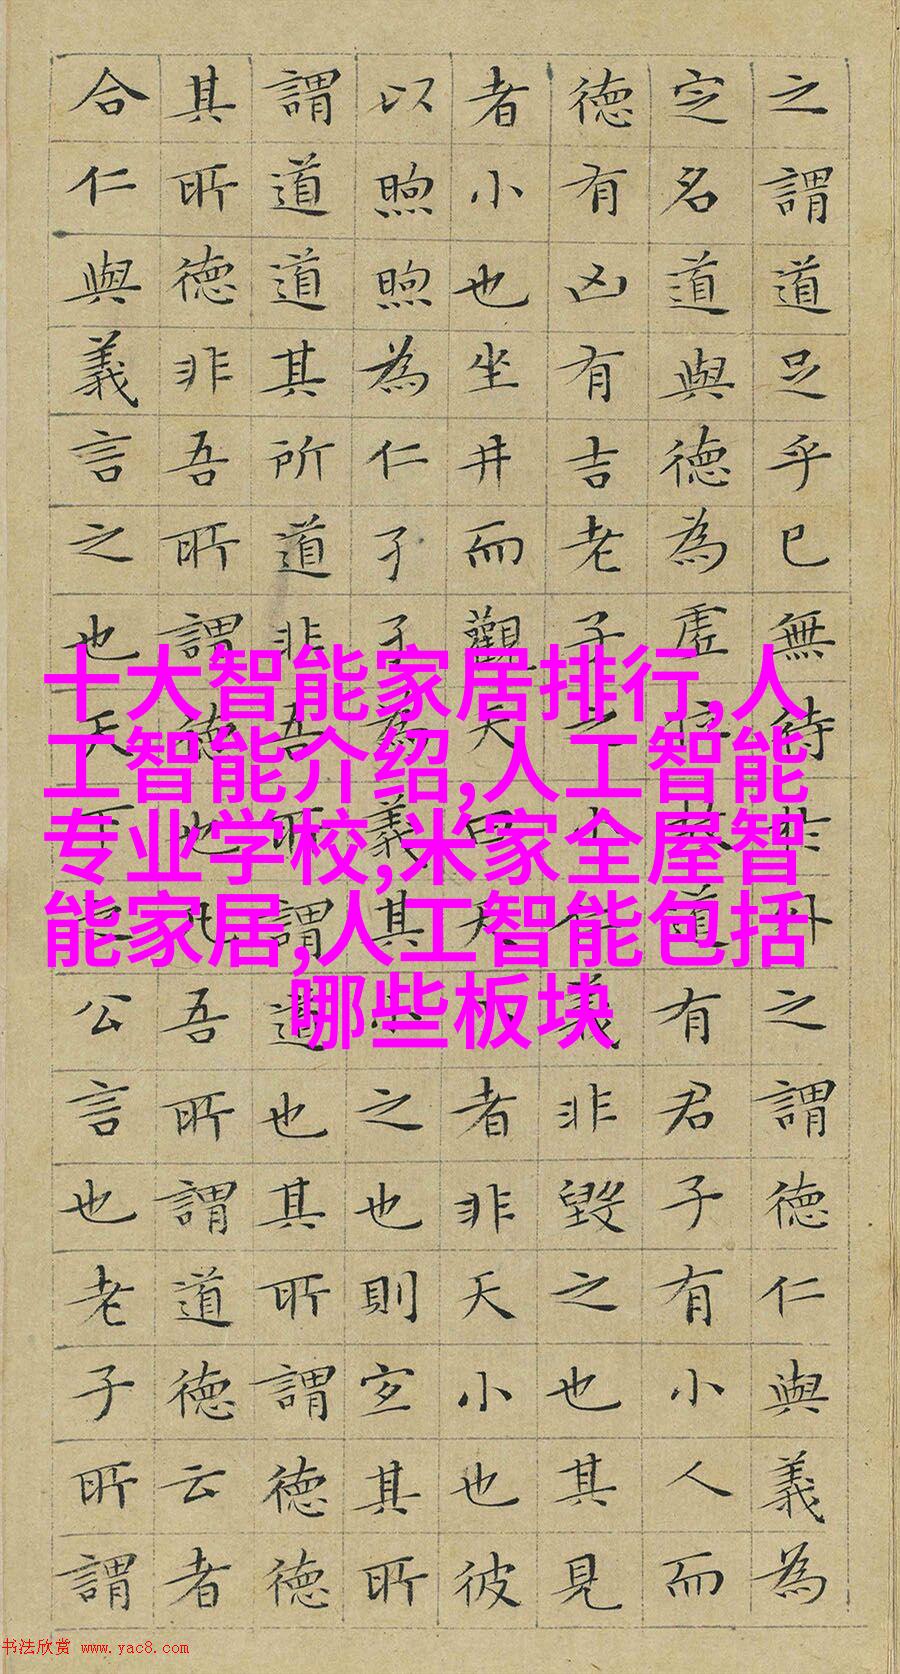 之謂道足乎已無待於外之謂德仁與義為
定名道與德為虛位故道有君子有小人而
德有凶有吉老子之小仁義非毀之也其見
者小也坐井而觀天曰天小者非天小也彼
以煦煦為仁孑孑為義其小之也則宜其所
謂道道其所道非吾所謂道也其所謂德德
其所德非吾所謂德也凡吾所謂道德云者
合仁與義言之也天下之公言也老子所謂
十大智能家居排行,人
工智能介绍,人工智能
专业学校,米家全屋智
能家居,人工智能包括
哪些板块
书法欣赏 www.yac8.com